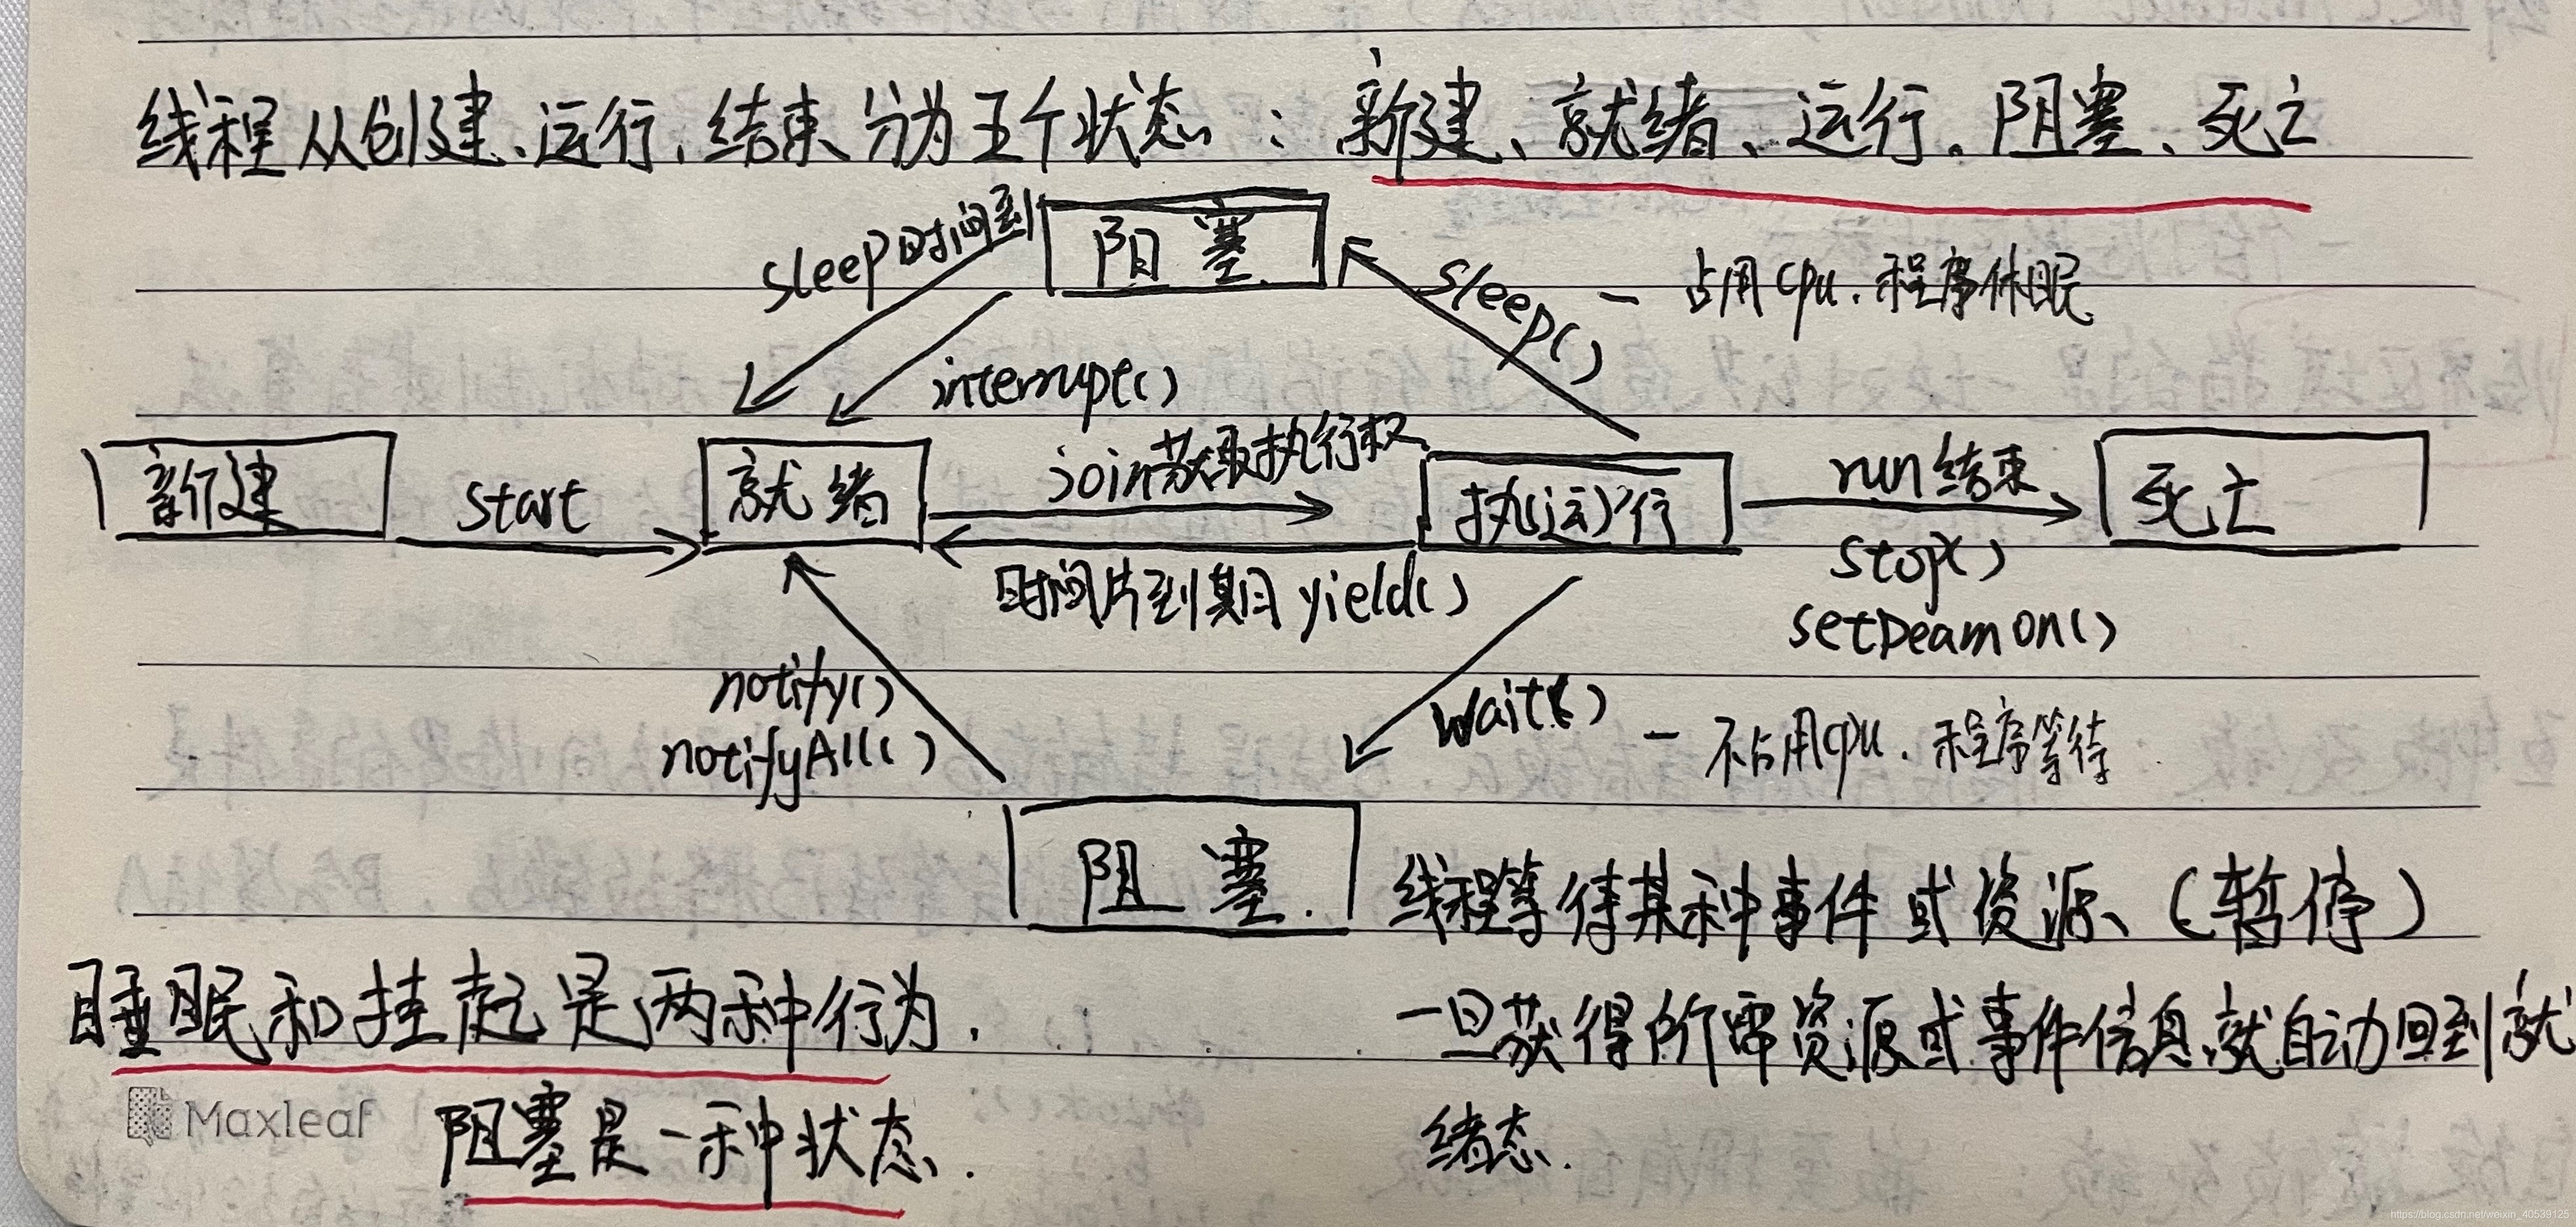 线程从创建、运行、结束分为五个状态：新建、就绪、运行、阻塞、死亡
sleep时间到
阻塞
sleep() - 占用cpu.程序休眠
interrupt()
新建
start
就绪
join获取执行权
执(运)行
run结束
死亡
时间片到期 yield()
stop()
setDeamon()
notify()
notifyAll()
wait() - 不占用cpu.程序等待
阻塞.
线程等待某种事件或资源、(暂停)
睡眠和挂起是两种行为.
一旦获得所需资源或事件信息,就自动回到就
绪态.
阻塞是一种状态.
Maxleaf
https://blog.csdn.net/weixin_40539125